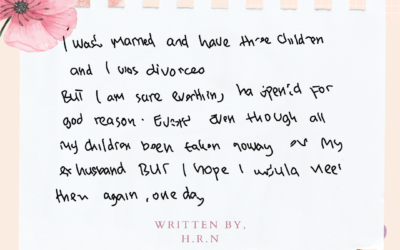 I was married and have three children
and I was divorced
But I am sure everthing ha ppen'd for
god reason. Event even though all
my children been taken away my
ex husband But I hope I would meet
them again, one day
WRITTEN BY,
H.R.N